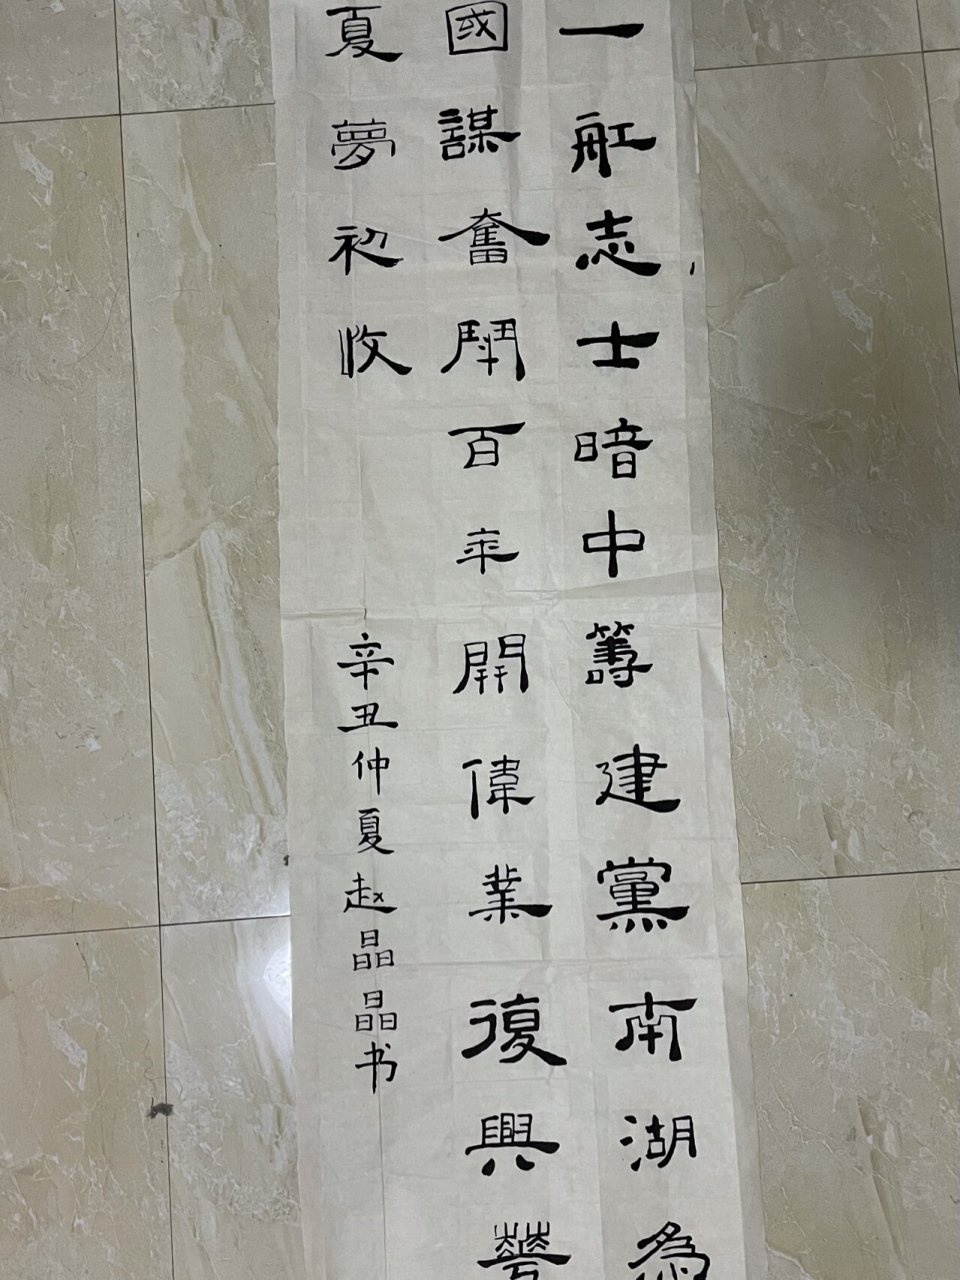 一舡志士暗中籌建黨南湖為
國謀奮鬥百年開偉業復興華
夏夢初收
辛丑仲夏赵晶晶书